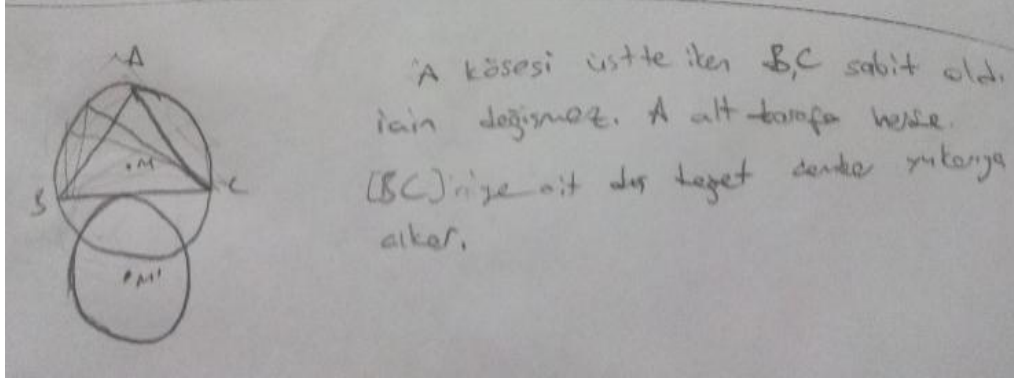 A
M
B
C
M'
A köşesi üstte iken B,C sabit old.
için değişmez. A alt tarafa
[BC] ait dış teğet çember yukarıya
çıkar.